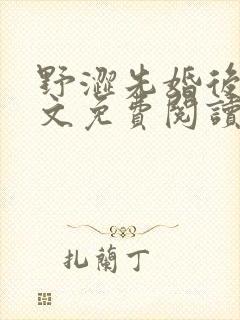 野澀先婚後
文免費閱讀
扎蘭丁